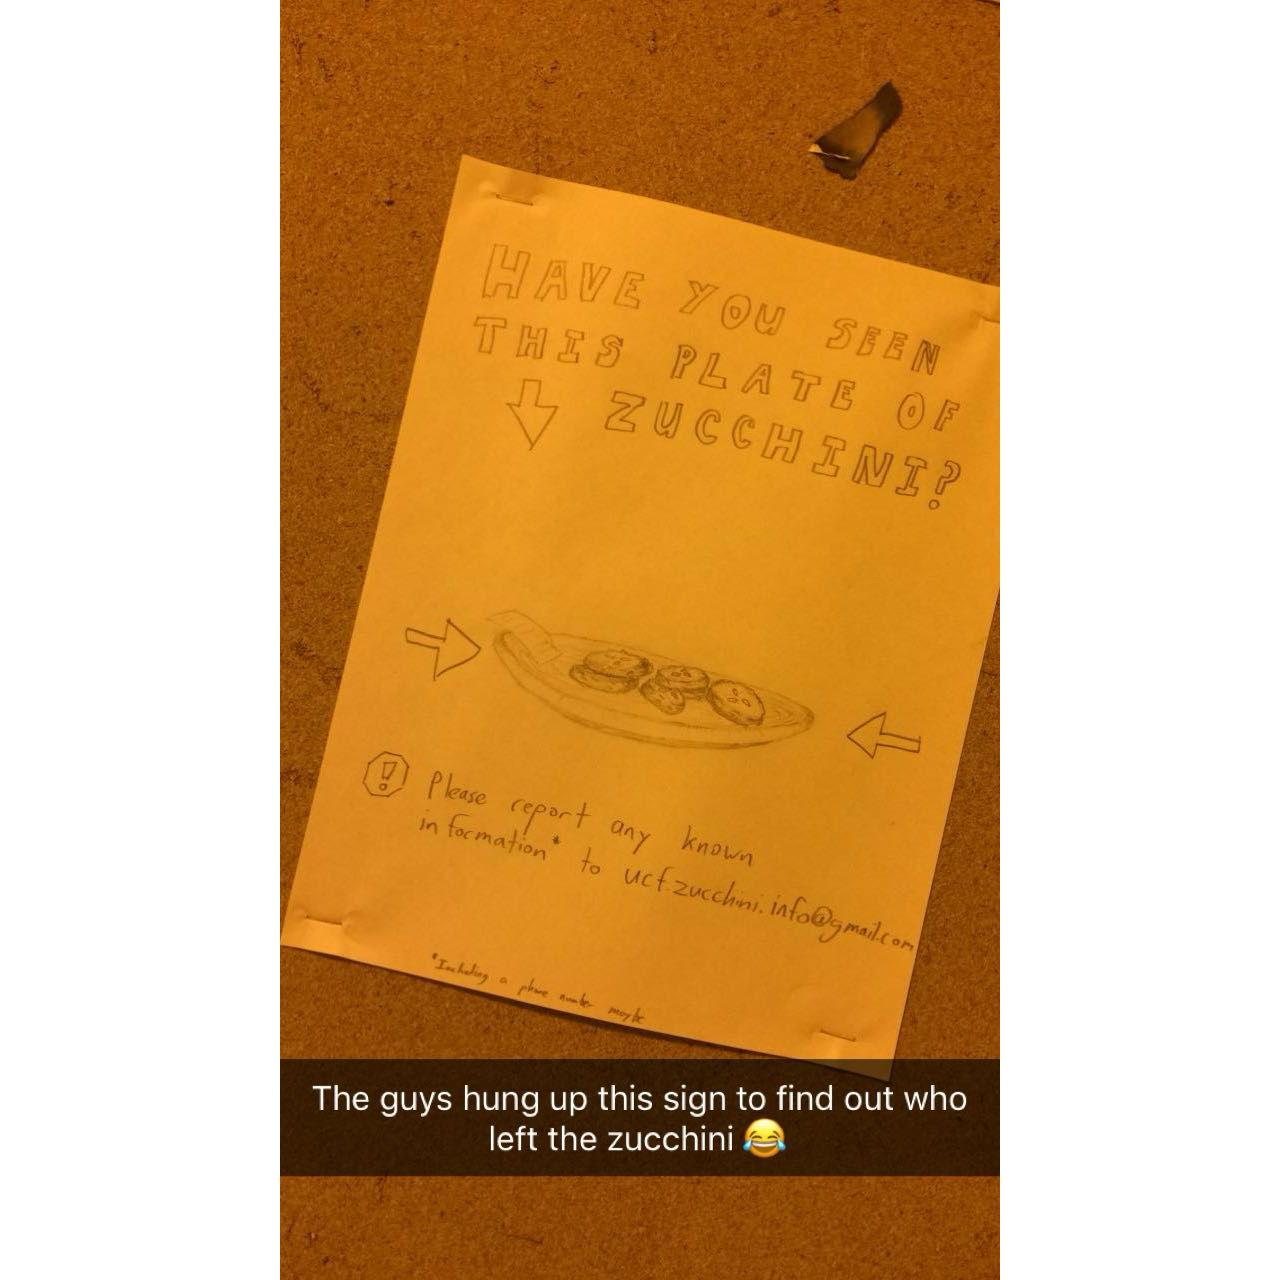 HAVE YOU SEEN
THIS PLATE OF
ZUCCHINI?
! Please report any known
information* to ucf.zucchini.info@gmail.com
*Including a phone number maybe
The guys hung up this sign to find out who
left the zucchini 😂